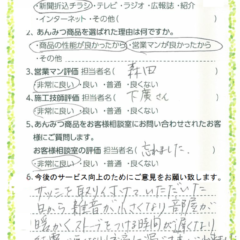 ・新聞折込チラシ・テレビ・ラジオ・広報誌・紹介
・インターネット・その他(　　)
2.あんみつ商品を選ばれた理由は何ですか。
・商品の性能が良かったから・営業マンが良かったから
・その他
3.営業マン評価 担当者名( 森田 )
・非常に良い・良い・普通・良くない
4.施工技師評価 担当者名( 下廣さん )
・非常に良い・良い・普通・良くない
5.あんみつ商品をお客様相談室にお問い合わせされたお客様に
ご質問します。
お客様相談室の評価 担当者名(
・非常に良い・良い・普通・良くない
6.今後のサービス向上のためにご意見をお願い致します。
サッシを取り付けていただいた
日から雑音が小さくなり部屋が
暖かくストーブをつける時間が